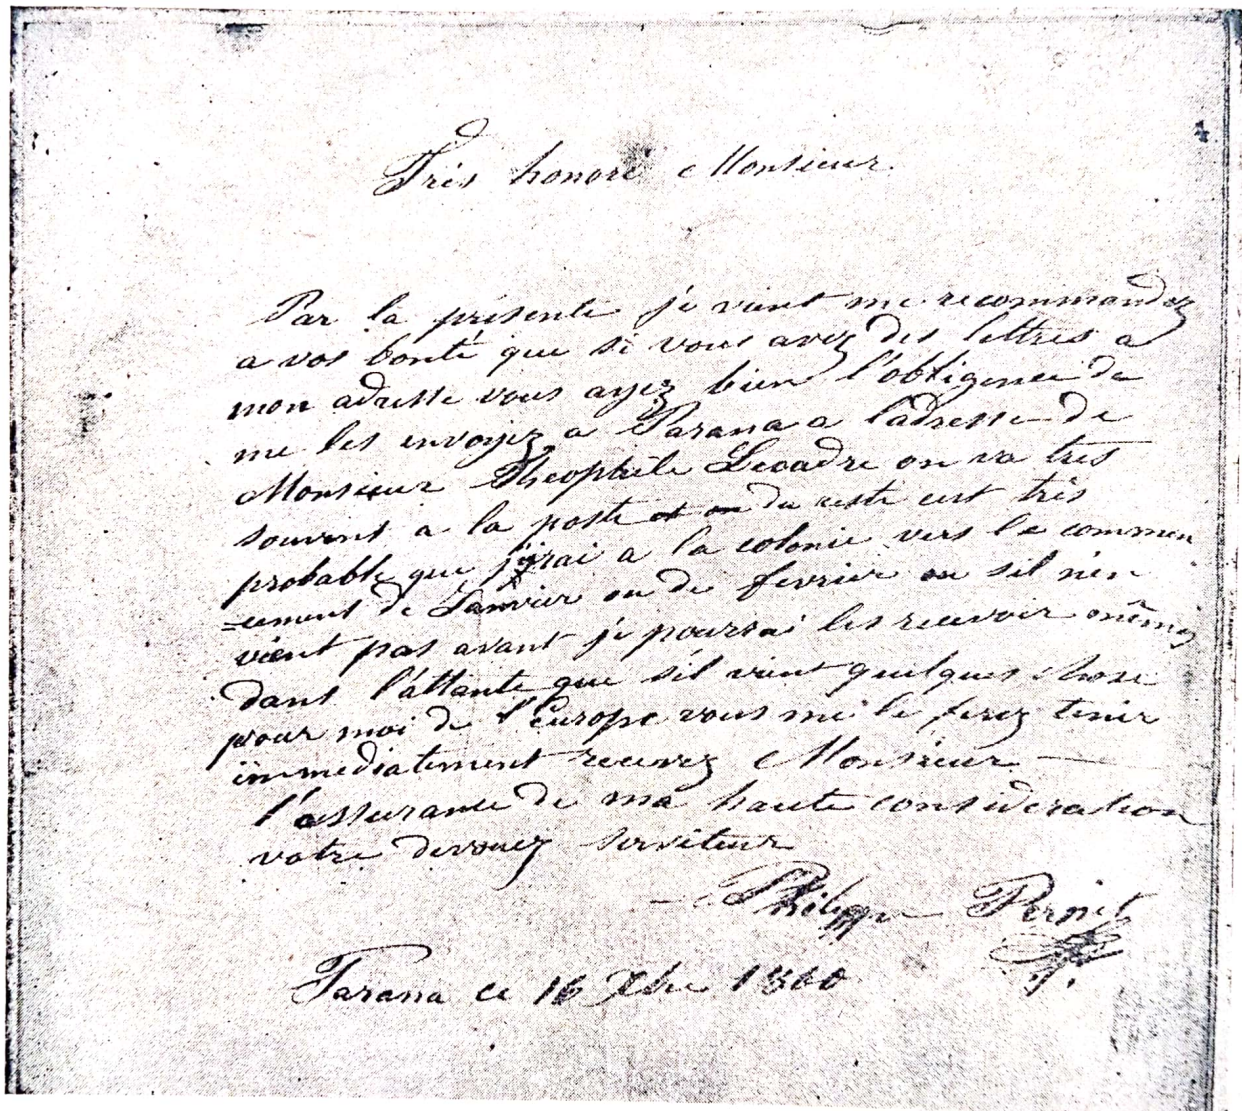 Très honoré Monsieur.
Par la présente je vient me recommandez
a vos bonté que si vous avez des lettres a
mon adresse vous ayez bien l'obligence de
me les envoyez a Parana a ladresse de
Monsieur Theophile Lecadre on va très
souvent a la poste et on du reste cest très
probable que j'irai a la colonie vers le commen
=cement de Janvier ou de fevrier ou sil n'en
vient pas avant je pourrai les recevoir
dans l'attante que s'il vient quelques chose
pour moi de l'Europe vous me le ferez tenir
immediatement recevez Monsieur
l'assurance de ma haute consideration
votre devouez serviteur
Philippe
Parana ce 16 Xbre 1860